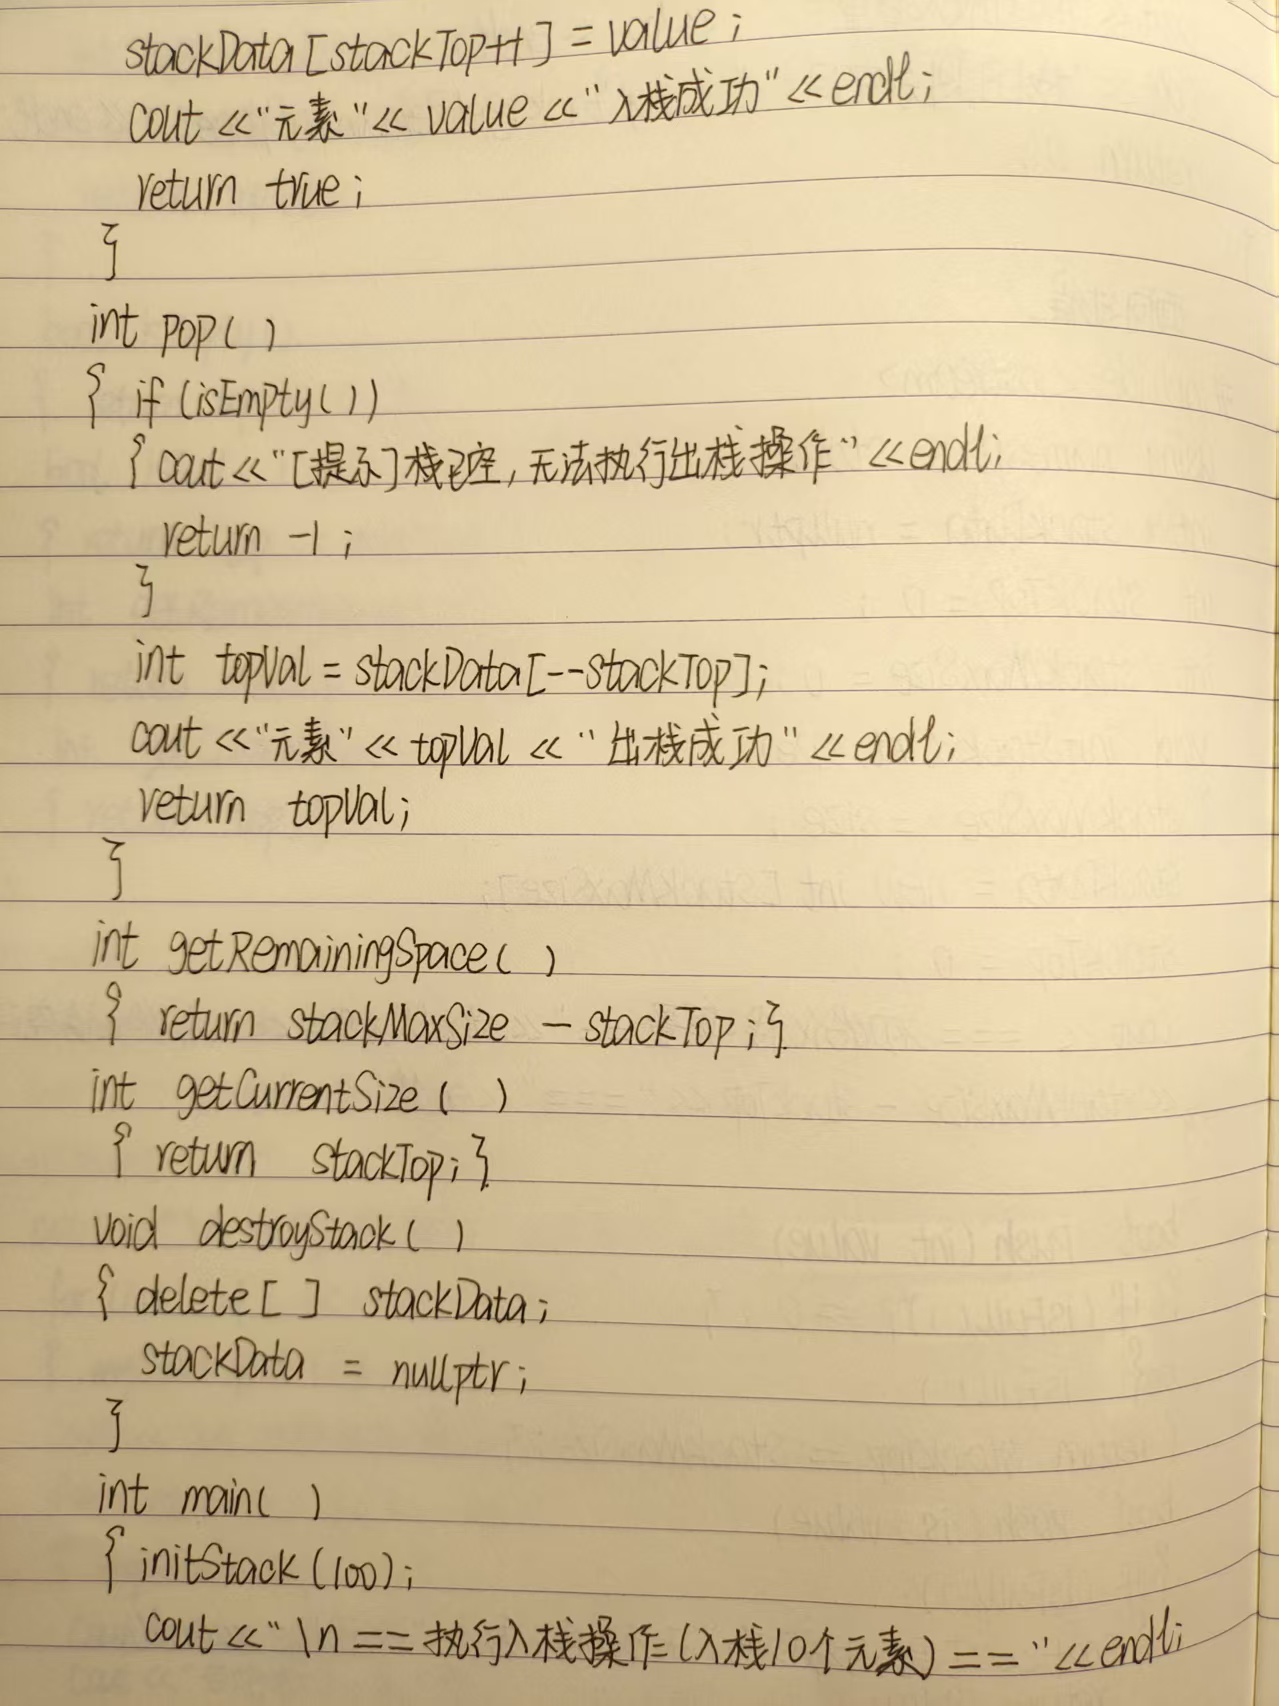 stackData[stackTop++] = value;
cout <<"元素"<< value <<"入栈成功"<<endl;
return true;
}
int pop()
{ if (isEmpty())
{ cout<<"[提示]栈已空,无法执行出栈操作"<<endl;
return -1;
}
int topVal = stackData[--stackTop];
cout <<"元素"<< topVal <<"出栈成功"<<endl;
return topVal;
}
int getRemainingSpace()
{ return stackMaxSize - stackTop;}
int getCurrentSize()
{ return stackTop;}
void destroyStack()
{ delete[] stackData;
stackData = nullptr;
}
int main()
{ initStack(100);
cout<<"\n==执行入栈操作(入栈10个元素)=="<<endl;